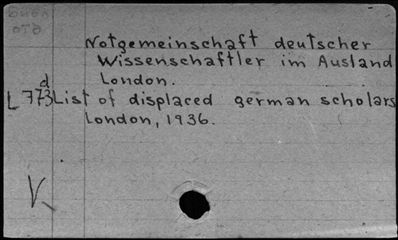 Notgemeinschaft deutscher
Wissenschaftler im Ausland
London.
d
L 773 List of displaced german scholars
London, 1936.
V